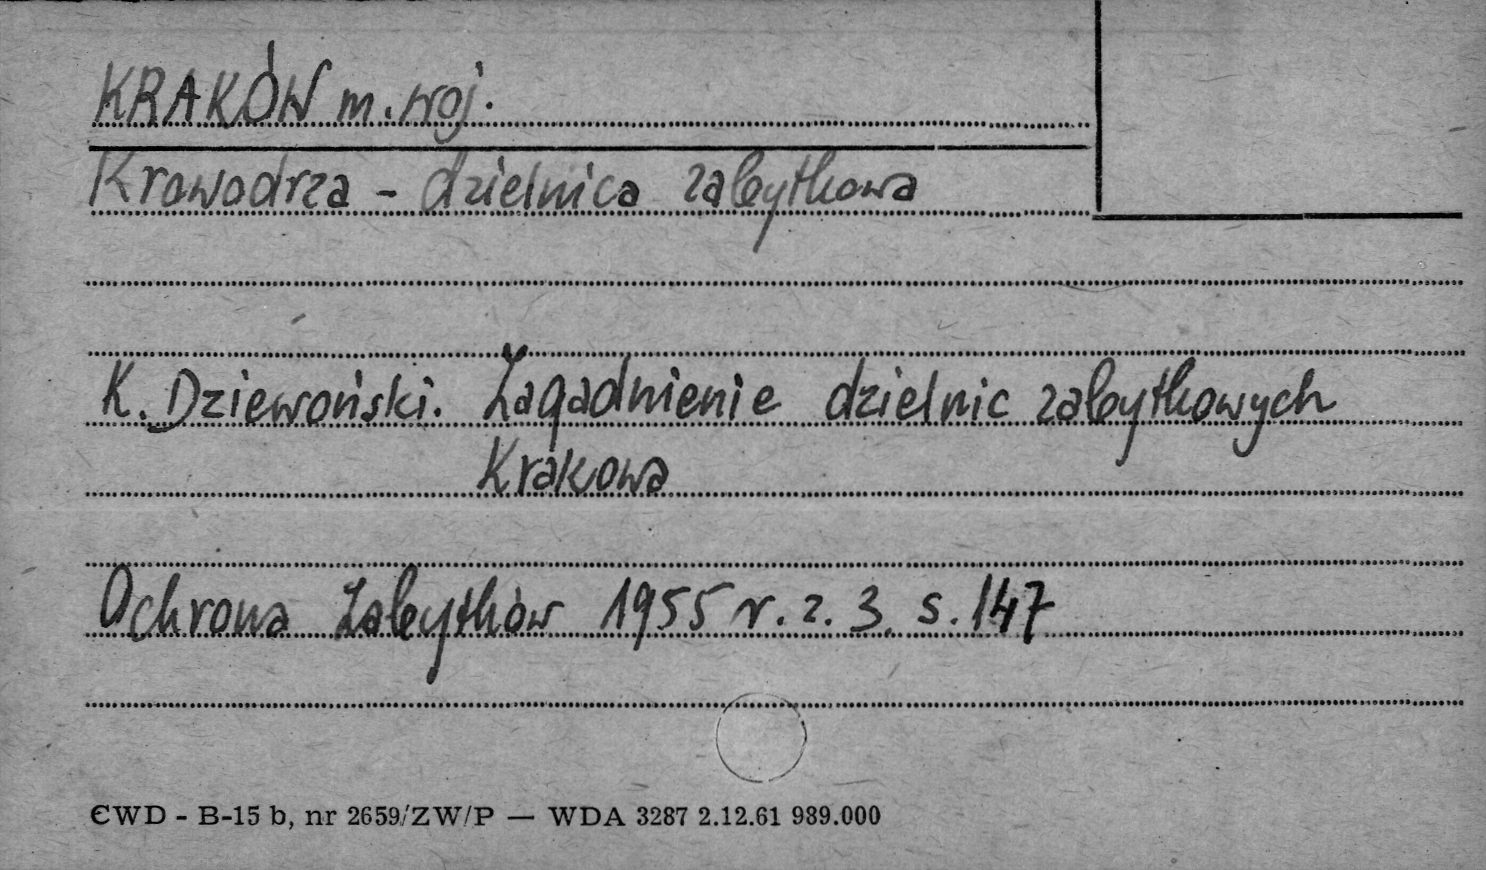 KRAKÓW m. woj.
Krowodrza - dzielnica zabytkowa
K. Dziewoński. Zagadnienie dzielnic zabytkowych
Krakowa
Ochrona Zabytków 1955 r. z. 3. s. 147
CWD - B-15 b, nr 2659/ZW/P — WDA 3287 2.12.61 989.000